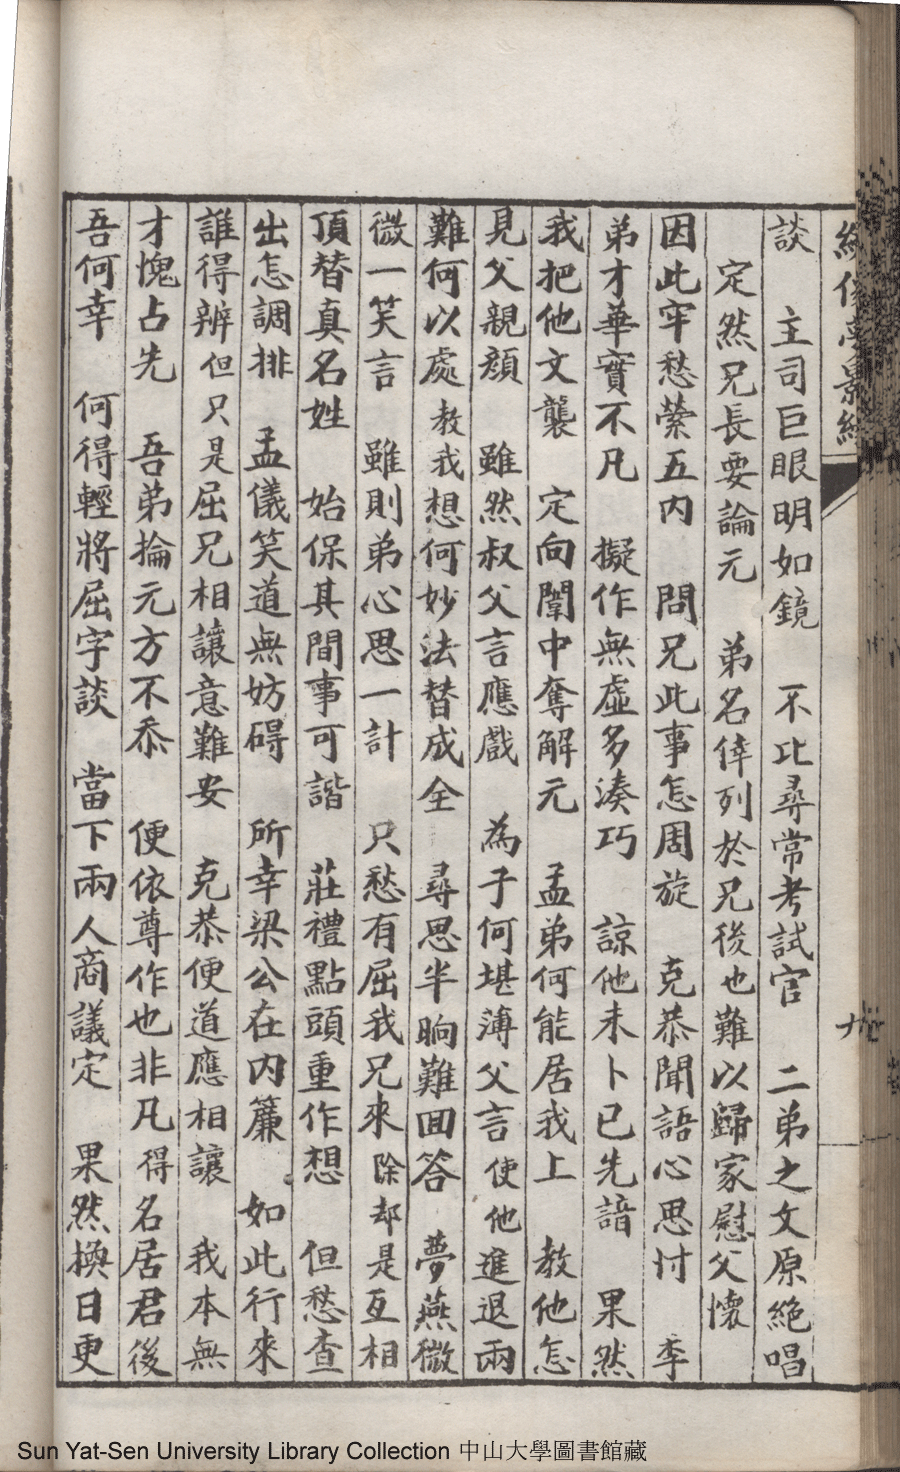 談　主司巨眼明如鏡　不比尋常考試官　二弟之文原絶唱
定然兄長要論元　弟名倖列於兄後也難以歸家慰父懷
因此牢愁縈五内　問兄此事怎周旋　克恭聞語心思忖　季
弟才華實不凡　擬作無虛多湊巧　諒他未卜已先諳　果然
我把他文襲　定向闈中奪解元　孟弟何能居我上　教他怎
見父親顔　雖然叔父言應戲　為子何堪薄父言　使他進退兩
難何以處教我想何妙法替成全　尋思半晌難回答　夢燕微
微一笑言　雖則弟心思一計　只愁有屈我兄來　除却是互相
頂替真名姓　始保其間事可諧　莊禮點頭重作想　但愁查
出怎調排　孟儀笑道無妨碍　所幸梁公在内簾　如此行來
誰得辨但只是屈兄相讓意難安　克恭便道應相讓　我本無
才愧占先　吾弟掄元方不忝　便依尊作也非凡得名居君後
吾何幸　何得輕將屈字談　當下兩人商議定　果然換日更
Sun Yat-Sen University Library Collection 中山大學圖書館藏